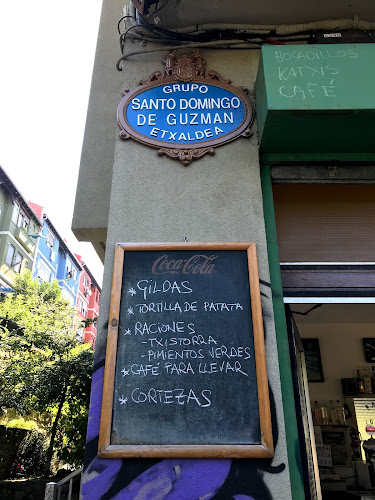 BOCADILLOS
KATXIS
CAFÉ
GRUPO
SANTO DOMINGO
DE GUZMAN
ETXALDEA
Coca-Cola
* GILDAS
* TORTILLA DE PATATA
* RACIONES
- TXISTORRA
- PIMIENTOS VERDES
* CAFÉ PARA LLEVAR
* CORTEZAS